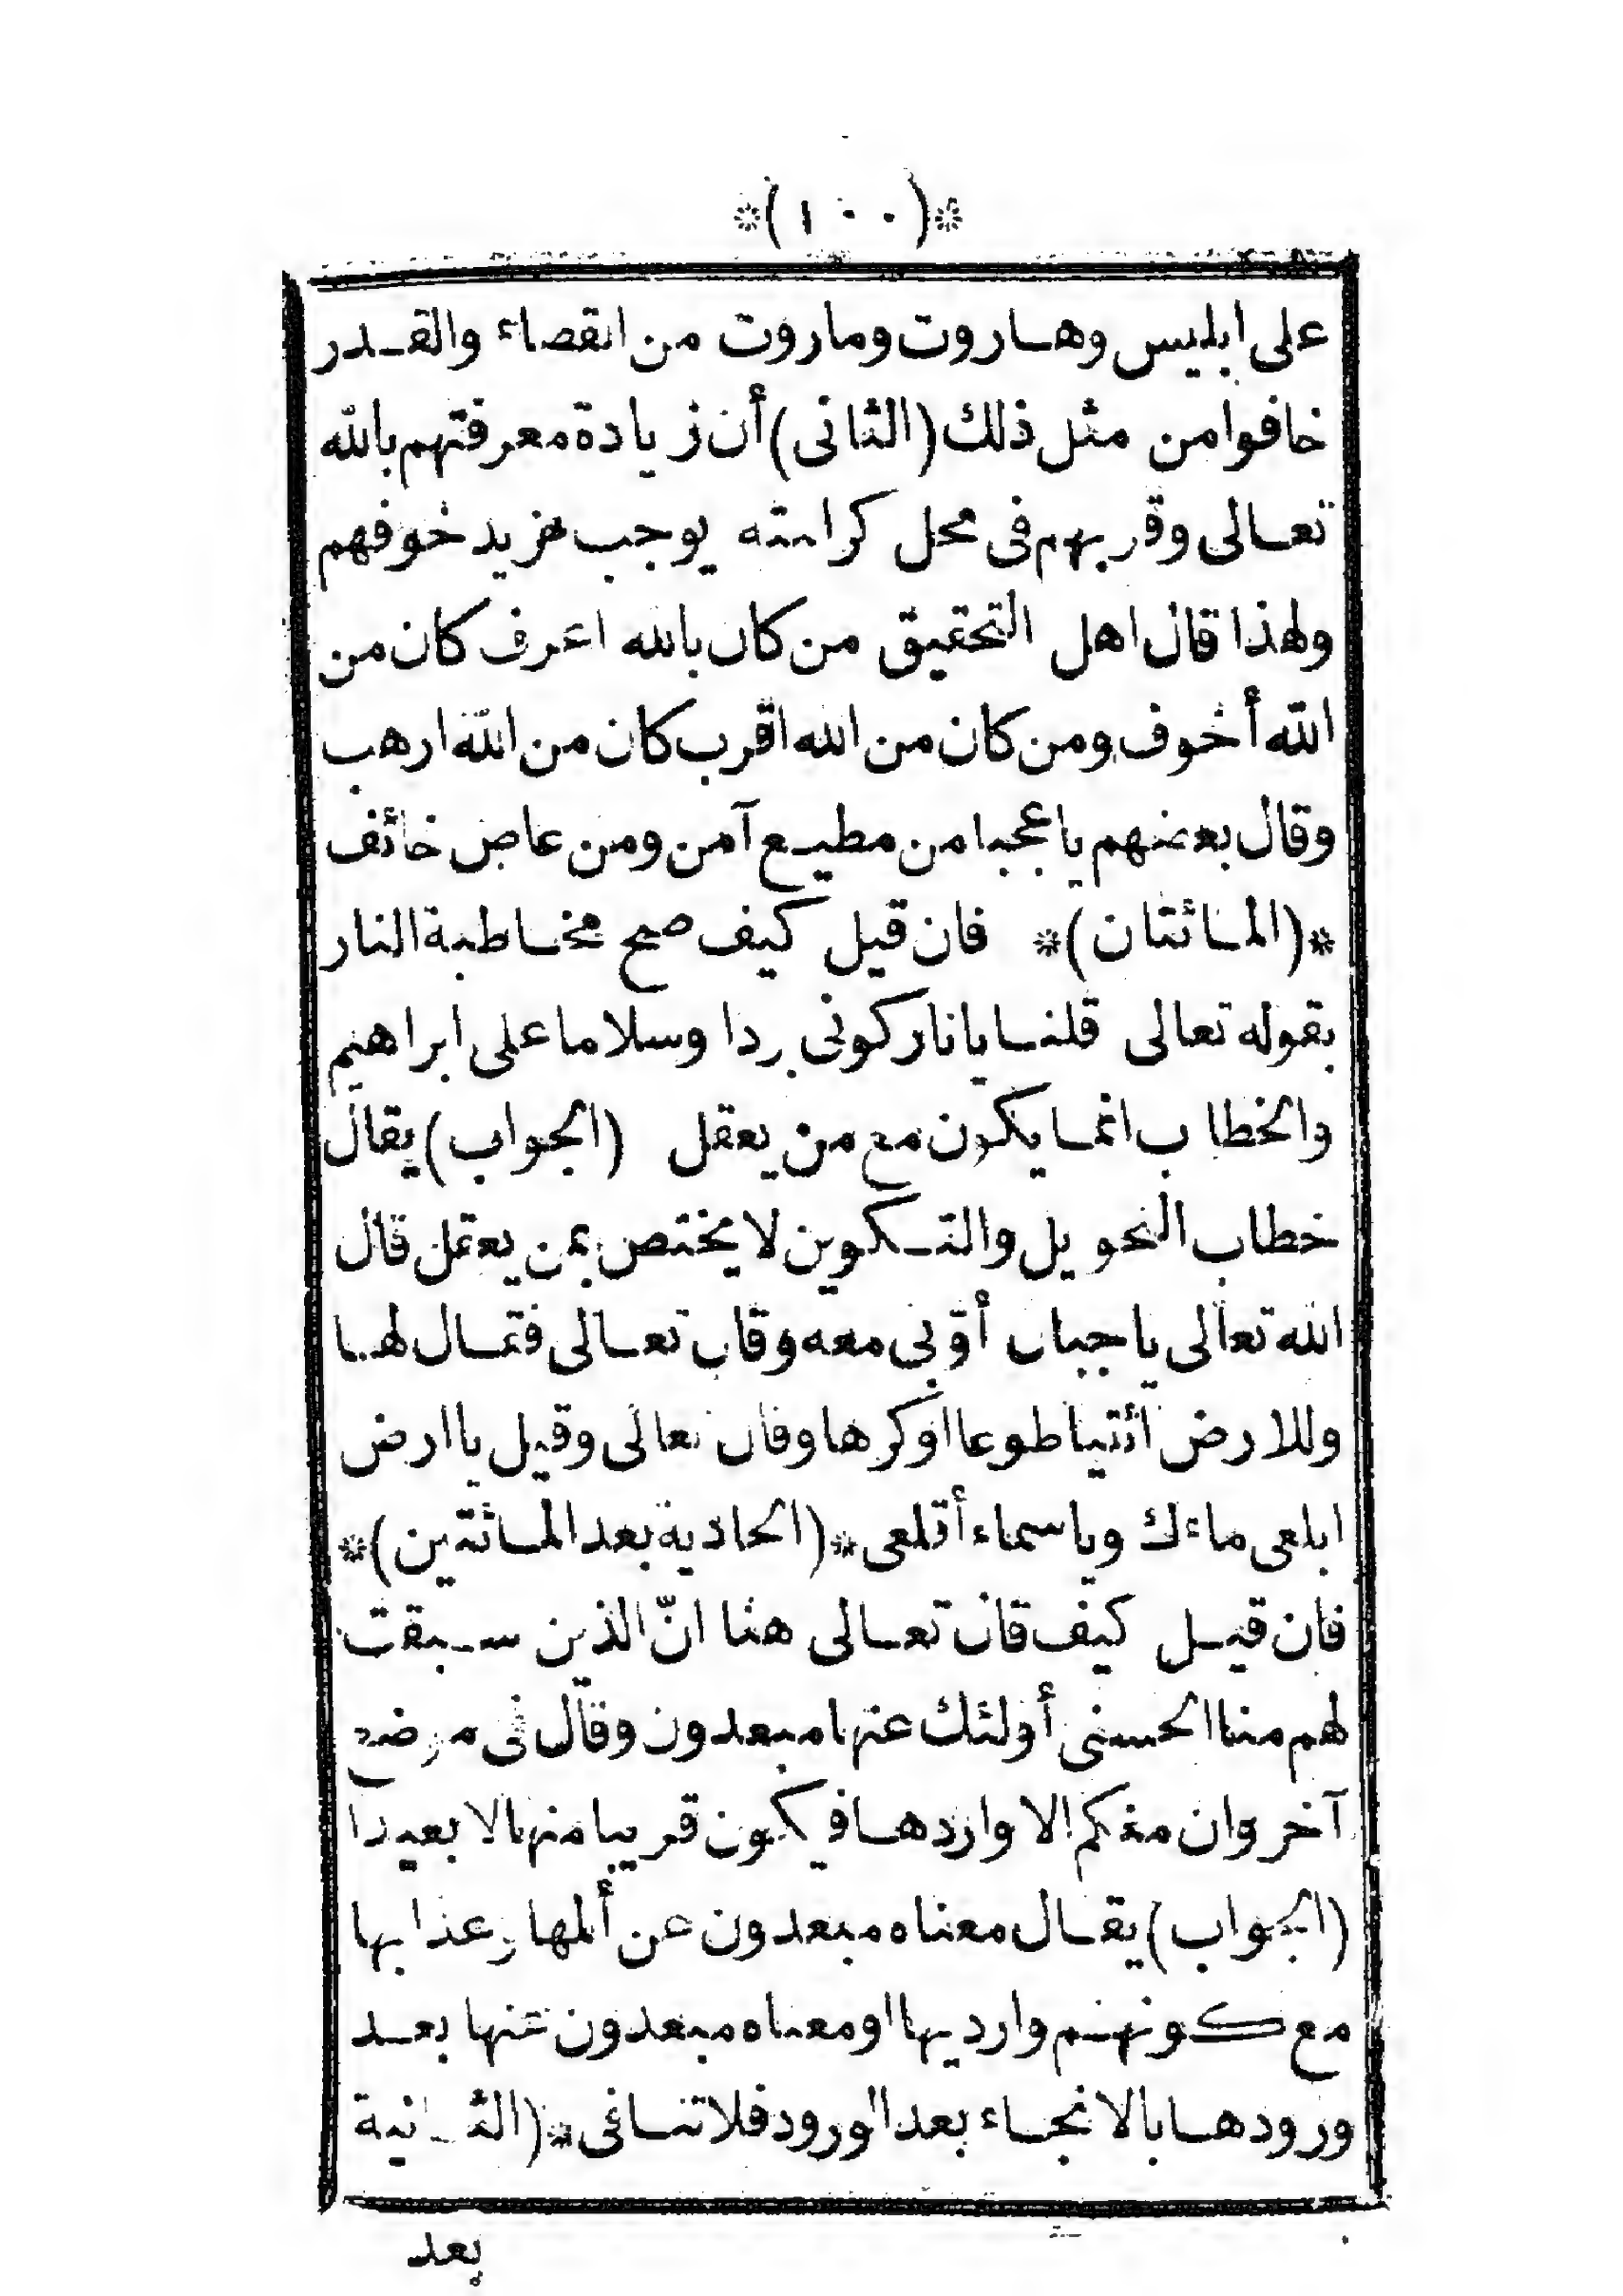 *(١٠٠)*
على ابليس وهاروت وماروت من القضاء والقدر
خافوا من مثل ذلك (الثانى) أن زيادة معرفتهم بالله
تعالى وقربهم فى محل كرامته يوجب مزيد خوفهم
ولهذا قال اهل التحقيق من كان بالله اعرف كان من
الله أخوف ومن كان من الله اقرب كان من الله ارهب
وقال بعضهم ياعجبا من مطيع آمن ومن عاص خائف
*(المائتان)* فان قيل كيف صح مخاطبة النار
بقوله تعالى قلنا يانار كونى بردا وسلاما على ابراهيم
والخطاب انما يكون مع من يعقل (الجواب) يقال
خطاب التحويل والتكوين لا يختص بمن يعقل قال
الله تعالى ياجبال أوّبى معه وقال تعالى فقال لها
وللارض ائتيا طوعا اوكرها وقال تعالى وقيل ياارض
ابلعى ماءك وياسماء أقلعى *(الحادية بعد المائتين)*
فان قيل كيف قال تعالى هنا انّ الذين سبقت
لهم منا الحسنى أولئك عنها مبعدون وقال فى موضع
آخر وان منكم الا واردها فيكون قريبا منها لا بعيدا
(الجواب) يقال معناه مبعدون عن ألمها وعذابها
مع كونهم وارديها او معناه مبعدون عنها بعد
ورودها بالانجاء بعد الورود فلا تنافى *(الثانية
بعد